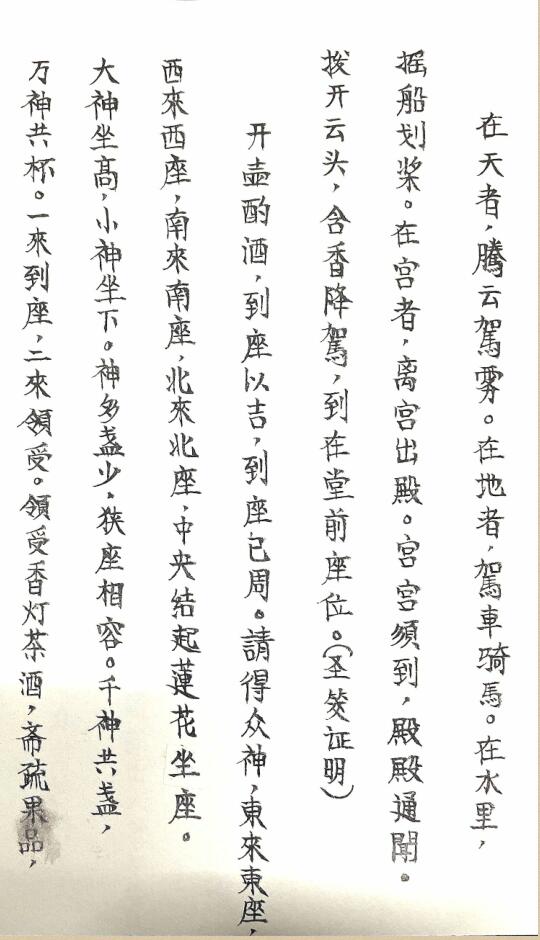 在天者，腾云駕雾。在地者，駕車騎馬。在水里，
摇船划桨。在宫者，离宫出殿。宫宫须到，殿殿通聞。
拨开云头，含香降駕，到在堂前座位。（圣筊证明）
开壶酌酒，到座以吉，到座已周。請得众神，東來東座，
西來西座，南來南座，北來北座，中央结起蓮花坐座。
大神坐高，小神坐下。神多盏少，狭座相容。千神共盏，
万神共杯。一來到座，二來領受。領受香灯茶酒，斋蔬果品，